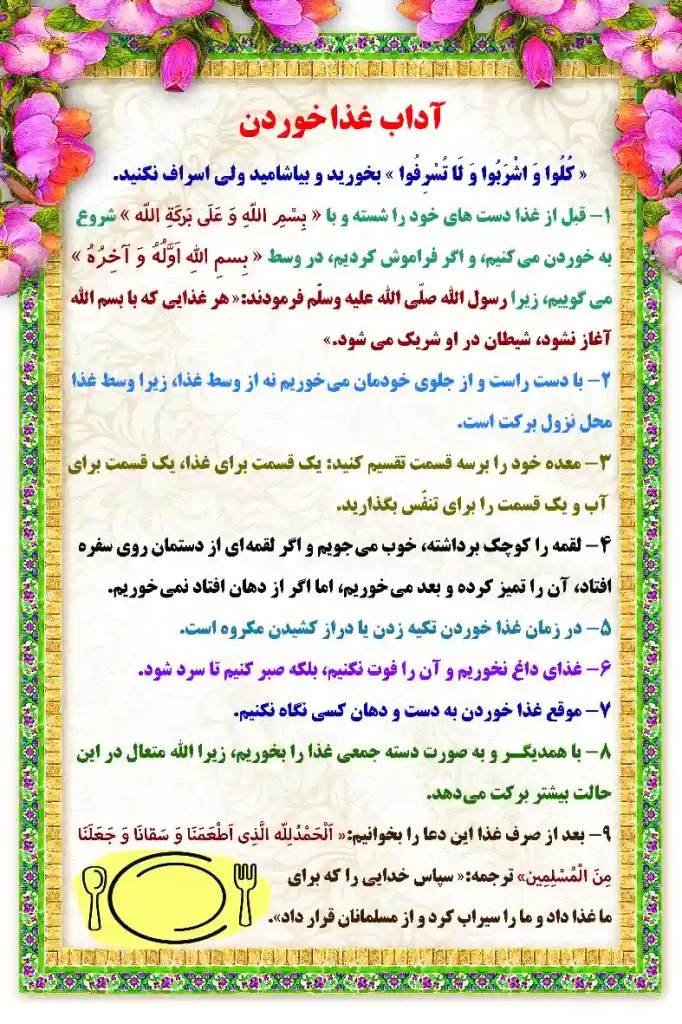 آداب غذا خوردن
« كُلُوا وَ اشْرَبُوا وَ لَا تُسْرِفُوا » بخورید و بیاشامید ولی اسراف نکنید.
۱- قبل از غذا دست های خود را شسته و با « بِسْمِ اللّهِ وَ عَلَى بَرَكَةِ اللّه » شروع
به خوردن می‌کنیم، و اگر فراموش کردیم، در وسط « بِسمِ اللهِ اَوَّلُهُ وَ آخِرُهُ »
می گوییم، زیرا رسول الله صلّی الله علیه وسلّم فرمودند:« هر غذایی که با بسم الله
آغاز نشود، شیطان در او شریک می شود.»
۲- با دست راست و از جلوی خودمان می‌خوریم نه از وسط غذا، زیرا وسط غذا
محل نزول برکت است.
۳- معده خود را برسه قسمت تقسیم کنید: یک قسمت برای غذا، یک قسمت برای
آب و یک قسمت را برای تنفّس بگذارید.
۴- لقمه را کوچک برداشته، خوب می‌جویم و اگر لقمه‌ای از دستمان روی سفره
افتاد، آن را تمیز کرده و بعد می‌خوریم، اما اگر از دهان افتاد نمی‌خوریم.
۵- در زمان غذا خوردن تکیه زدن یا دراز کشیدن مکروه است.
۶- غذای داغ نخوریم و آن را فوت نکنیم، بلکه صبر کنیم تا سرد شود.
۷- موقع غذا خوردن به دست و دهان کسی نگاه نکنیم.
۸- با همدیگــر و به صورت دسته جمعی غذا را بخوریم، زیرا الله متعال در این
حالت بیشتر برکت می‌دهد.
۹- بعد از صرف غذا این دعا را بخوانیم:« اَلْحَمْدُلِلّه الَّذِی اَطْعَمَنَا وَ سَقانَا وَ جَعَلَنَا
مِنَ الْمُسْلِمِینَ» ترجمه:« سپاس خدایی را که برای
ما غذا داد و ما را سیراب کرد و از مسلمانان قرار داد».